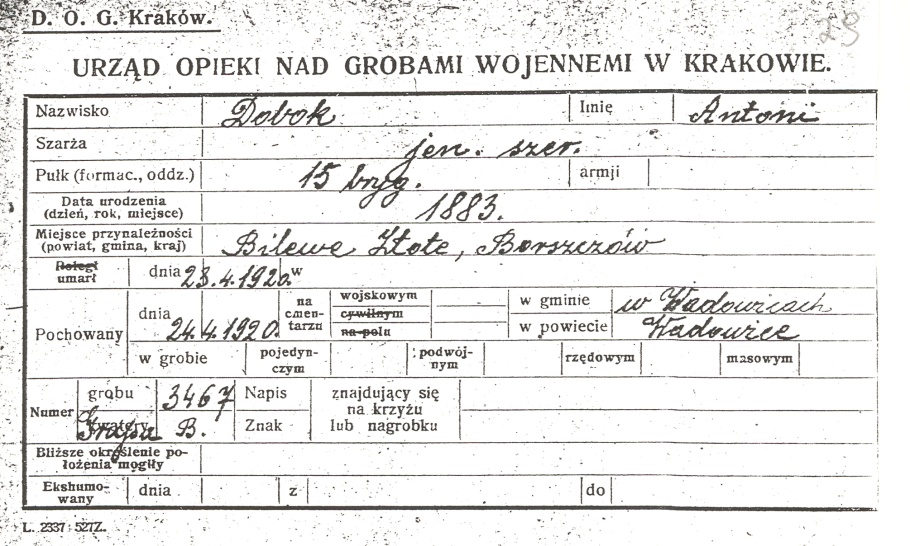 D. O. G. Kraków.
29
URZĄD OPIEKI NAD GROBAMI WOJENNEMI W KRAKOWIE.
Nazwisko Dobok Imię Antoni
Szarża jen. szer.
Pułk (formac., oddz.) 15 bryg. armji
Data urodzenia
(dzień, rok, miejsce) 1883.
Miejsce przynależności
(powiat, gmina, kraj) Bilewe Złote, Borszczów
Poległ
umarł dnia 23.4.1920. w
Pochowany dnia 24.4.1920. na cmen-
tarzu
wojskowym
cywilnym
na polu
w gminie w Wadowicach
w powiecie Wadowice
w grobie pojedyn-
czym
podwój-
nym
rzędowym masowym
Numer grobu 3467
kwatery B.
Napis
Znak
znajdujący się
na krzyżu
lub nagrobku
Bliższe określenie po-
łożenia mogiły
Ekshumo-
wany dnia z do
L. 2337 527Z.